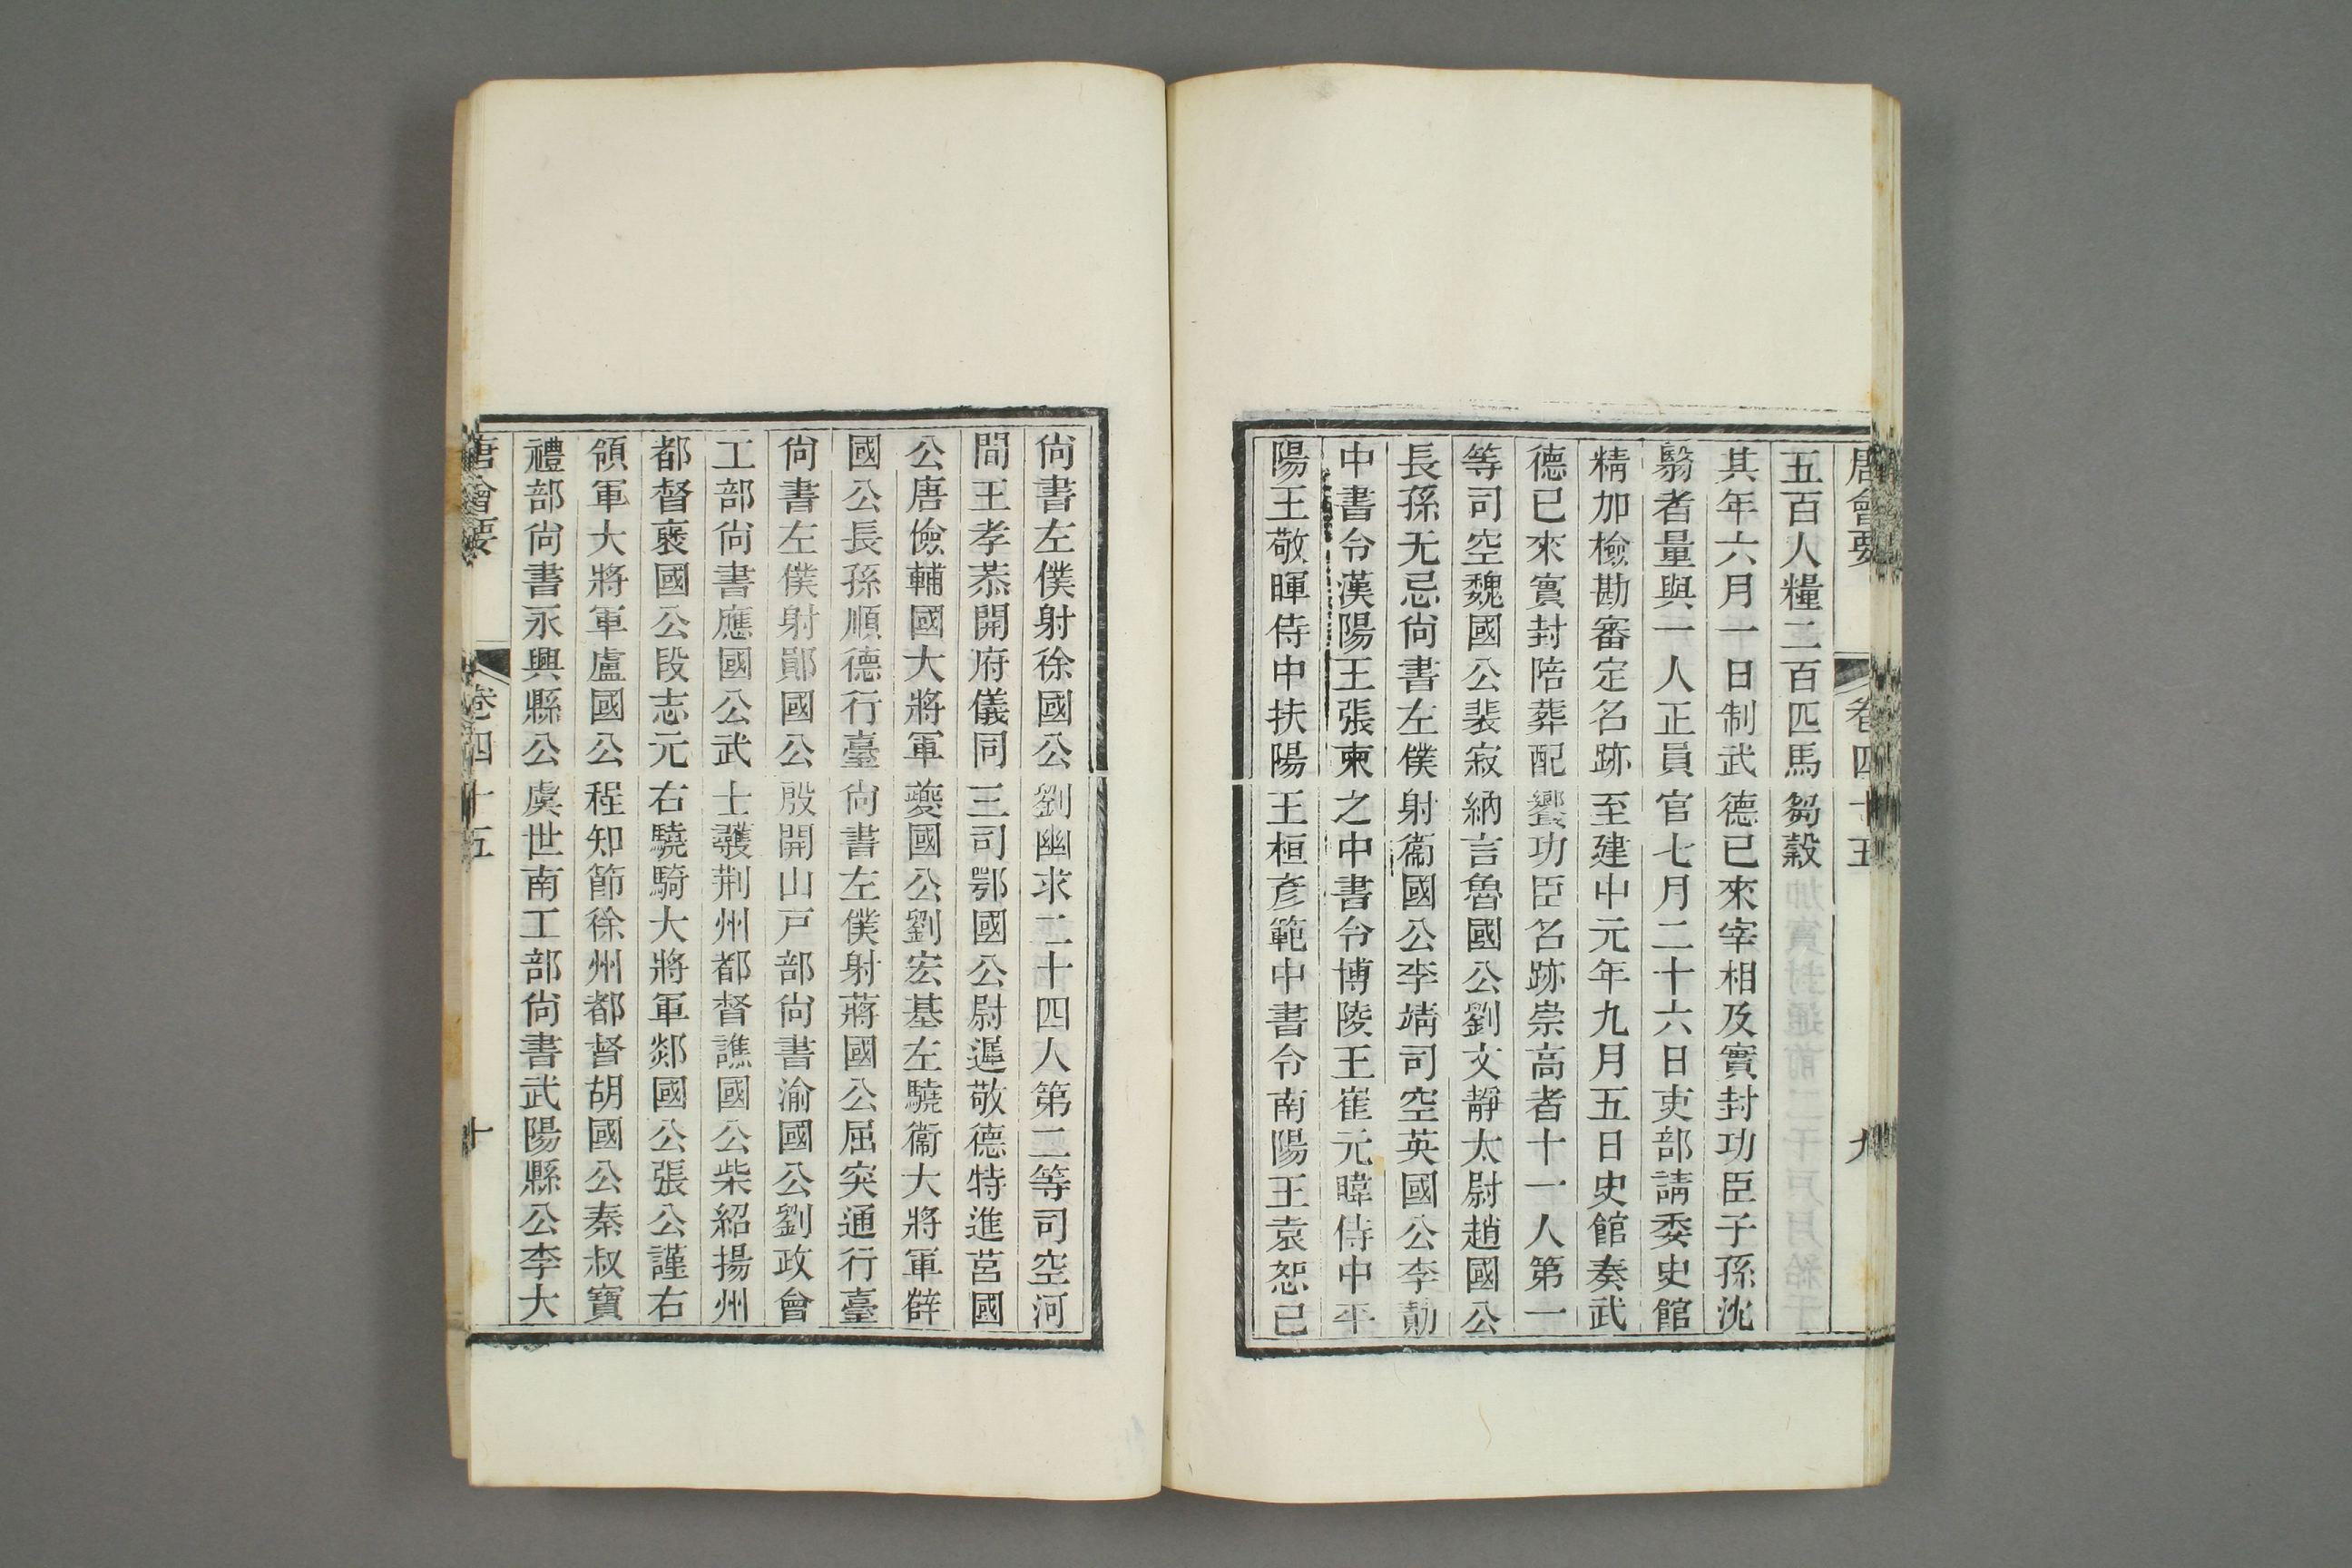 唐會要 卷四十五 九
五百人糧二百匹馬芻穀
其年六月一日制武德已來宰相及實封功臣子孫沈
翳者量與一人正員官七月二十六日吏部請委史館
精加檢勘審定名跡至建中元年九月五日史館奏武
德已來實封陪葬配饗功臣名跡崇高者十一人第一
等司空魏國公裴寂納言魯國公劉文靜太尉趙國公
長孫无忌尙書左僕射衞國公李靖司空英國公李勣
中書令漢陽王張柬之中書令博陵王崔元暐侍中平
陽王敬暉侍中扶陽王桓彥範中書令南陽王袁恕己
尙書左僕射徐國公劉幽求二十四人第二等司空河
間王孝恭開府儀同三司鄂國公尉遲敬德特進莒國
公唐儉輔國大將軍夔國公劉宏基左驍衞大將軍薛
國公長孫順德行臺尙書左僕射蔣國公屈突通行臺
尙書左僕射鄖國公殷開山戸部尙書渝國公劉政會
工部尙書應國公武士彠荆州都督譙國公柴紹揚州
都督襃國公段志元右驍騎大將軍郯國公張公謹右
領軍大將軍盧國公程知節徐州都督胡國公秦叔寶
禮部尙書永興縣公虞世南工部尙書武陽縣公李大
唐會要 卷四十五 十